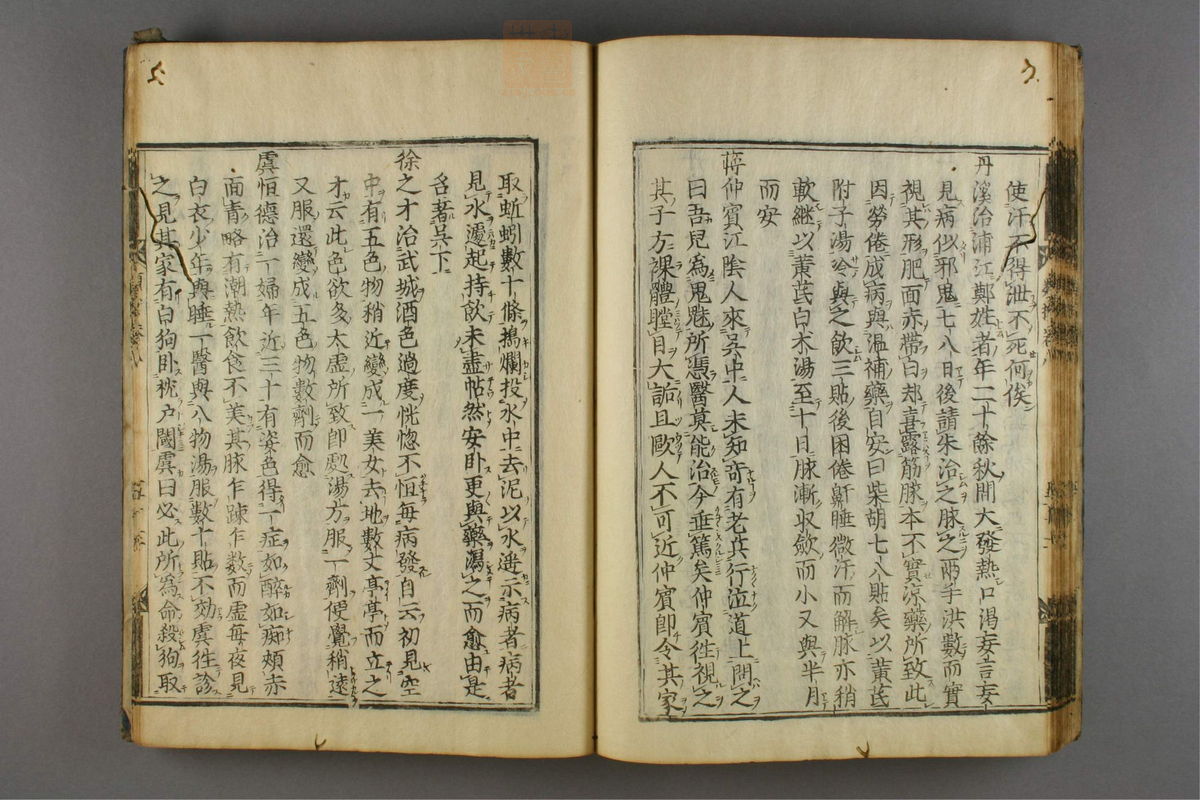 使汗不得泄不死何俟
丹溪治浦江鄭姓者年二十餘秋間大發熱口渴妄言妄
見病似邪鬼七八日後請朱治之脉之兩手洪數而實
視其形肥面赤帶白却喜露筋脉本不實涼藥所致此
因勞倦成病與温補藥自安曰柴胡七八貼矣以黄芪
附子湯冷與之飲三貼後困倦鼾睡微汗而解脉亦稍
軟継以黄芪白朮湯至十日脉漸収斂而小又與半月
而安
蒋仲賓江陰人來呉中人未知竒有老兵行泣道上問之
曰吾兒為鬼魅所憑醫莫能治今垂篤矣仲賓徃視之
其子方裸體瞠目大詬且歐人不可近仲賓即令其家
取蚯蚓數十條搗爛投水中去泥以水遥示病者病者
見水遽起持飲未盡帖然安卧更與藥瀉之而愈由是
名著呉下
徐之才治武城酒色過度恍惚不恒毎病發自云初見空
中有五色物稍近變成一美女去地數丈亭亭而立之
才云此色欲多太虚所致即處湯方服一劑便覺稍遠
又服還變成五色物數劑而愈
虞恒德治一婦年近三十有姿色得一症如醉如痴頰赤
面青略有潮熱飲食不美其脉乍踈乍数而虚毎夜見
白衣少年與睡一醫與八物湯服數十貼不効虞徃診
之見其家有白狗卧枕户閾虞曰必此所為命殺狗取